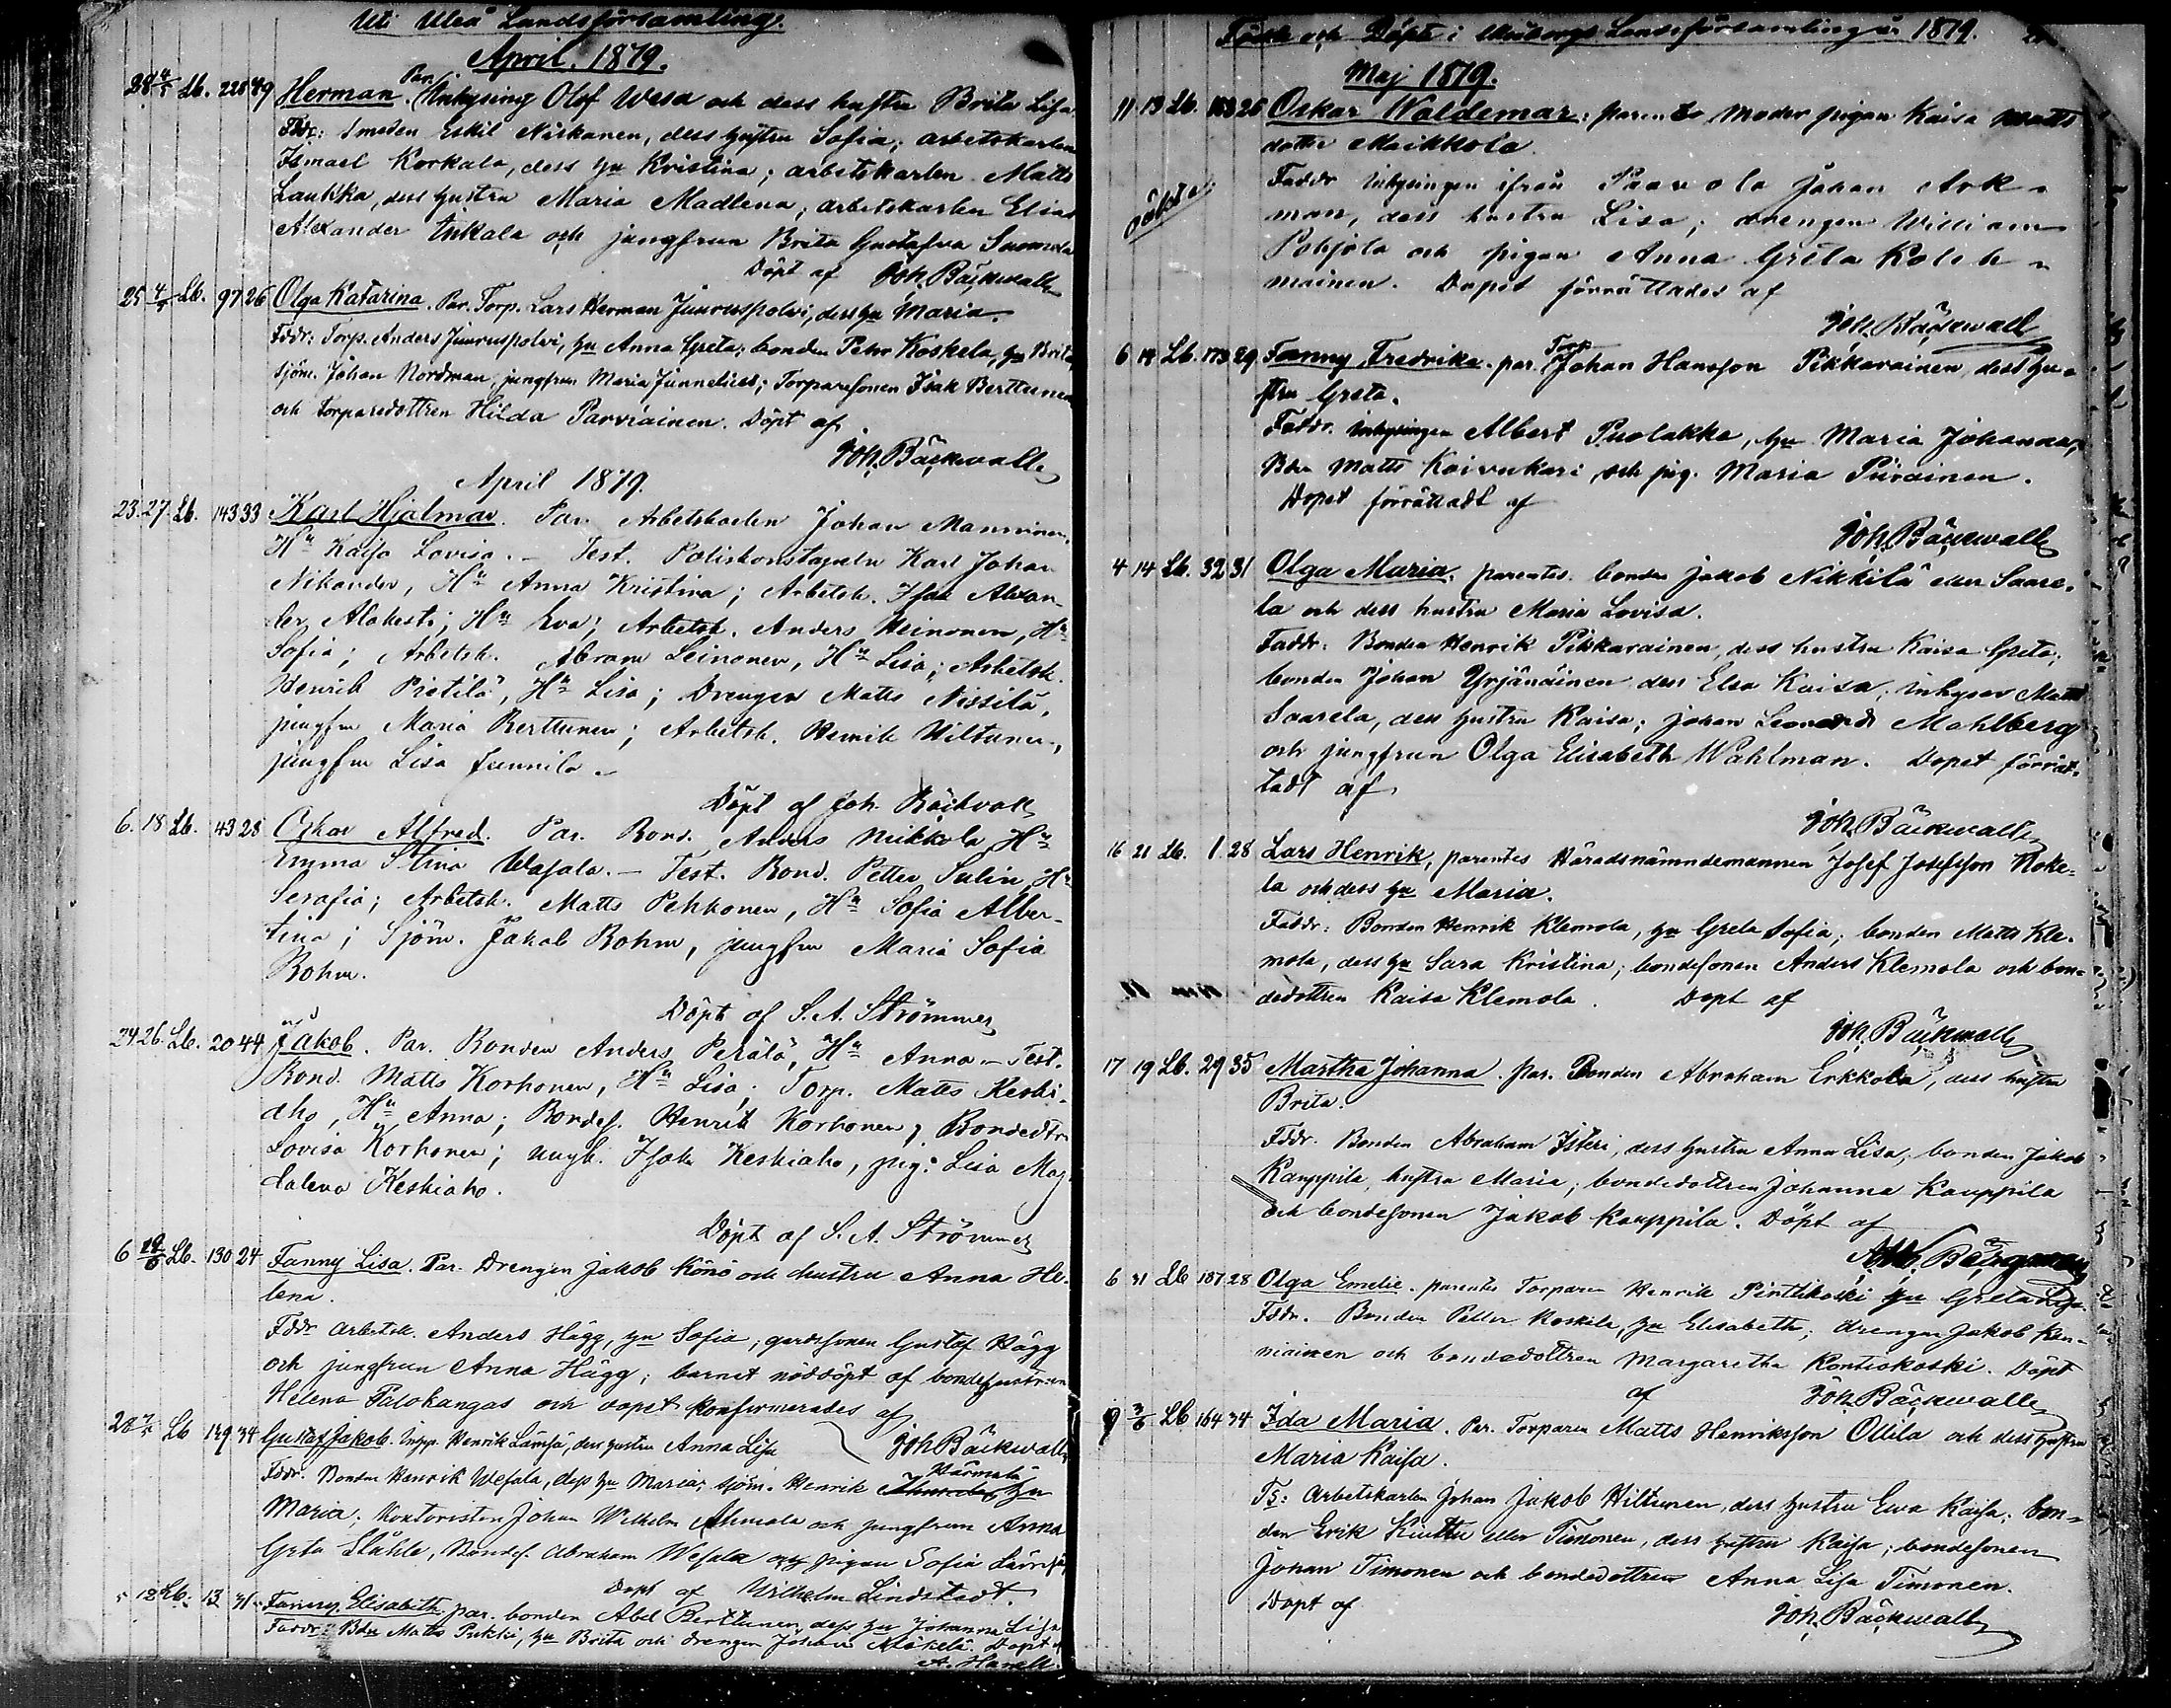 Uti Uleå Landsförsamling.
April. 1879.
28 4/5 Lb. 228 49 Herman. Par. Inhysing Olof Wesa och dess hustru Brita Lisa
Fddr: Smeden Eskil Niskanen, dess hustru Sofia; arbetskarlen
Ismael Korkala, dess hu Kristina; arbetskarlen Matts
Laukka, dess hustru Maria Madlena; arbetskarlen Elias
Alexander Inkala och jungfrun Brita Gustafva Suomela
Döpt af Joh. Bäckwall
25 4/5 Lb. 97 26 Olga Katarina. Par. Torp. Lars Herman Juuruspolvi, dess hu Maria.
Fddr: Torp. Anders Juuruspolvi, hu Anna Greta; bonden Petter Koskela, hu Brita,
sjöm. Johan Nordman, jungfrun Maria Junnelius; Torparesonen Isak Berttunen
och torparedottren Hilda Parviainen. Döpt af
Joh. Bäckwall
April 1879.
23. 27. Lb. 143 33 Karl Hjalmar. Par. Arbetskarlen Johan Manninen,
Hu Kaisa Lovisa. – Test. Poliskonstapeln Karl Johan
Nikander, Hu Anna Kristina; Arbetsk. Isak Alexan-
der Alakesti; Hu Eva; Arbetsk. Anders Heinonen, Hu
Sofia; Arbetsk. Abram Leinonen, Hu Lisa; Arbetsk.
Henrik Pietilä, Hu Lisa; Drengen Matts Nissilä,
jungfru Maria Berttunen; Arbetsk. Henrik Hiltunen,
jungfru Lisa Junnila.
Döpt af Joh. Bäckvall
6. 18 Lb. 43 28 Oskar Alfred. Par. Bond. Anders Mikkola Hu
Emma Stina Wasala. – Test. Bond. Petter Sulin Hu
Serafia; Arbetsk. Matts Pehkonen, Hu Sofia Alber-
tina; Sjöm. Jakob Bohm, jungfru Maria Sofia
Bohm.
Döpt af S. A. Strömmer
24. 26. Lb. 20 44 Jakob. Par. Bonden Anders Perälä, Hu Anna – Test.
Bond. Matts Korhonen, Hu Lisa; Torp. Matts Keski-
aho, Hu Anna; Bondes. Henrik Korhonen, Bondedtr
Lovisa Korhonen; ungk. Isak Keskiaho, pig. Lisa Mag-
dalena Keskiaho.
Döpt af S. A. Strömmer
6 Lb. 130 24 Fanny Lisa. Par. Drengen Jakob Könö och hustru Anna He-
lena.
Fddr Arbetsk. Anders Hägg, hu Sofia; gardssonen Gustaf Hägg
och jungfrun Anna Hägg; barnet nöddöpt af bondehustrun
Helena Palokangas och dopet konfirmerades af
Joh Bäckwall
Lb 149 34 Gustaf Jakob. Inhys. Henrik Lämsä, dess hustru Anna Lisa
Fddr. Bonden Henrik Wesala, dess hu Maria; sjöm. Henrik Härmälä hu
Maria; Kontoristen Johan Wilhelm Ahmala och jungfrun Anna
Greta Ståhle, Bondes. Abraham Wesala och pigan Sofia Lämsä
Döpt af Wilhelm Lindstedt.
5 12 Lb. 13 31 Fanny Elisabeth par. bonden Abel Berttunen, dess hu Johanna Lisa
Faddr: Bdn Matts Pukki, hu Brita och drengen Johan Mäkelä. Döpt af
A. Havell.
Födde och Döpte i Uleåborgs Landsförsamling år 1879.
Maj 1879.
11 13 Lb. 183 26 Oskar Waldemar; parentes Moder pigan Kaisa Matts
dotter Maikkola.
oäkta
Faddr inhysingen ifrån Paavola Johan Ark-
man, dess hustru Lisa; drengen William
Pohjola och pigan Anna Greta Koleh-
mainen. Dopet förrättades af
Joh. Bäckwall
6 14 Lb. 173 29 Fanny Fredrika. par. Torp. Johan Hansson Pikkarainen, dess hu-
stru Greta.
Faddr. inhysingen Albert Puolakka, hu Maria Johanna,
Bdn Matts Koivukari, och pig. Maria Piirainen.
Dopet förrättadt af
Joh. Bäckwall
4 14 Lb. 32 31 Olga Maria. parentes. bonden Jakob Nikkilä eller Saare-
la och dess hustru Maria Lovisa.
Faddr: Bonden Henrik Pikkarainen, dess hustru Kaisa Greta;
bonden Johan Yrjänäinen dess Elsa Kaisa; inhyser Matts
Saarela, dess hustru Kaisa; Johan Leonard Mahlberg
och jungfrun Olga Elisabeth Wahlman. Dopet förrät-
tadt af
Joh. Bäckwall
16 21 Lb. 1 28 Lars Henrik, parentes Häradsnämndemannen Josef Josefsson Koke-
la och dess hu Maria.
Faddr: Bonden Henrik Klemola, hu Greta Sofia; bonden Matts Kle-
mola, dess hu Sara Kristina; bondesonen Anders Klemola och bon-
dedottren Kaisa Klemola. Döpt af
Joh. Bäckwall
17 19 Lb. 29 35 Martha Johanna. par. Bonden Abraham Erkkola, dess hustru
Brita.
Fddr. Bonden Abraham Isteri, dess hustru Anna Lisa, bonden Jakob
Kauppila, hustru Maria; bondedottren Johanna Kauppila
och bondesonen Jakob Kauppila. Döpt af
6 31 Lb 187 28 Olga Emelie. parentes Torparen Henrik Pinttikoski hu Greta Lisa.
Fddr. Bonden Petter Koskela, hu Elisabeth; drengen Jakob Ken-
niainen och bondedottren Margaretha Kontiokoski. Döpt
af Joh. Bäckwall
9 3/6 Lb 164 34 Ida Maria. Par. Torparen Matts Henriksson Ollila och dess hustru
Maria Kaisa.
Fs: Arbetskarlen Johan Jakob Hiltunen, dess hustru Ewa Kaisa; bon-
den Erik Kiuttu eller Timonen, dess hustru Kaisa; bondesonen
Johan Timonen och bondedottren Anna Lisa Timonen.
Döpt af
Joh. Bäckwall